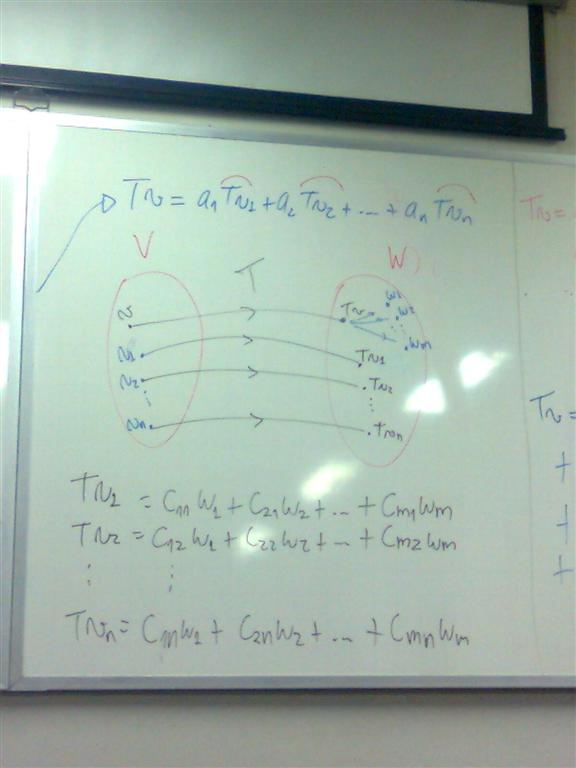 Tv = a₁Tv₁ + a₂Tv₂ + ... + aₙTvₙ
Tv =
V T W
v Tv w₁ w₂ ⋮ wₘ
v₁ Tv₁
v₂ Tv₂
⋮ ⋮
vₙ Tvₙ
Tv =
+
+
+
Tv₁ = C₁₁w₁ + C₂₁w₂ + ... + Cₘ₁wₘ
Tv₂ = C₁₂w₁ + C₂₂w₂ + ... + Cₘ₂wₘ
⋮ ⋮
Tvₙ = C₁ₙw₁ + C₂ₙw₂ + ... + Cₘₙwₘ